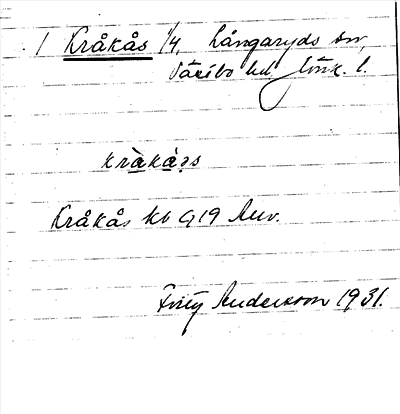 1 Kråkås 1/4, Långaryds sn,
Västbo hd, Jönk. l.
kràkå̀s
Kråkås kb G 19 Auv.
Andersson 1931.